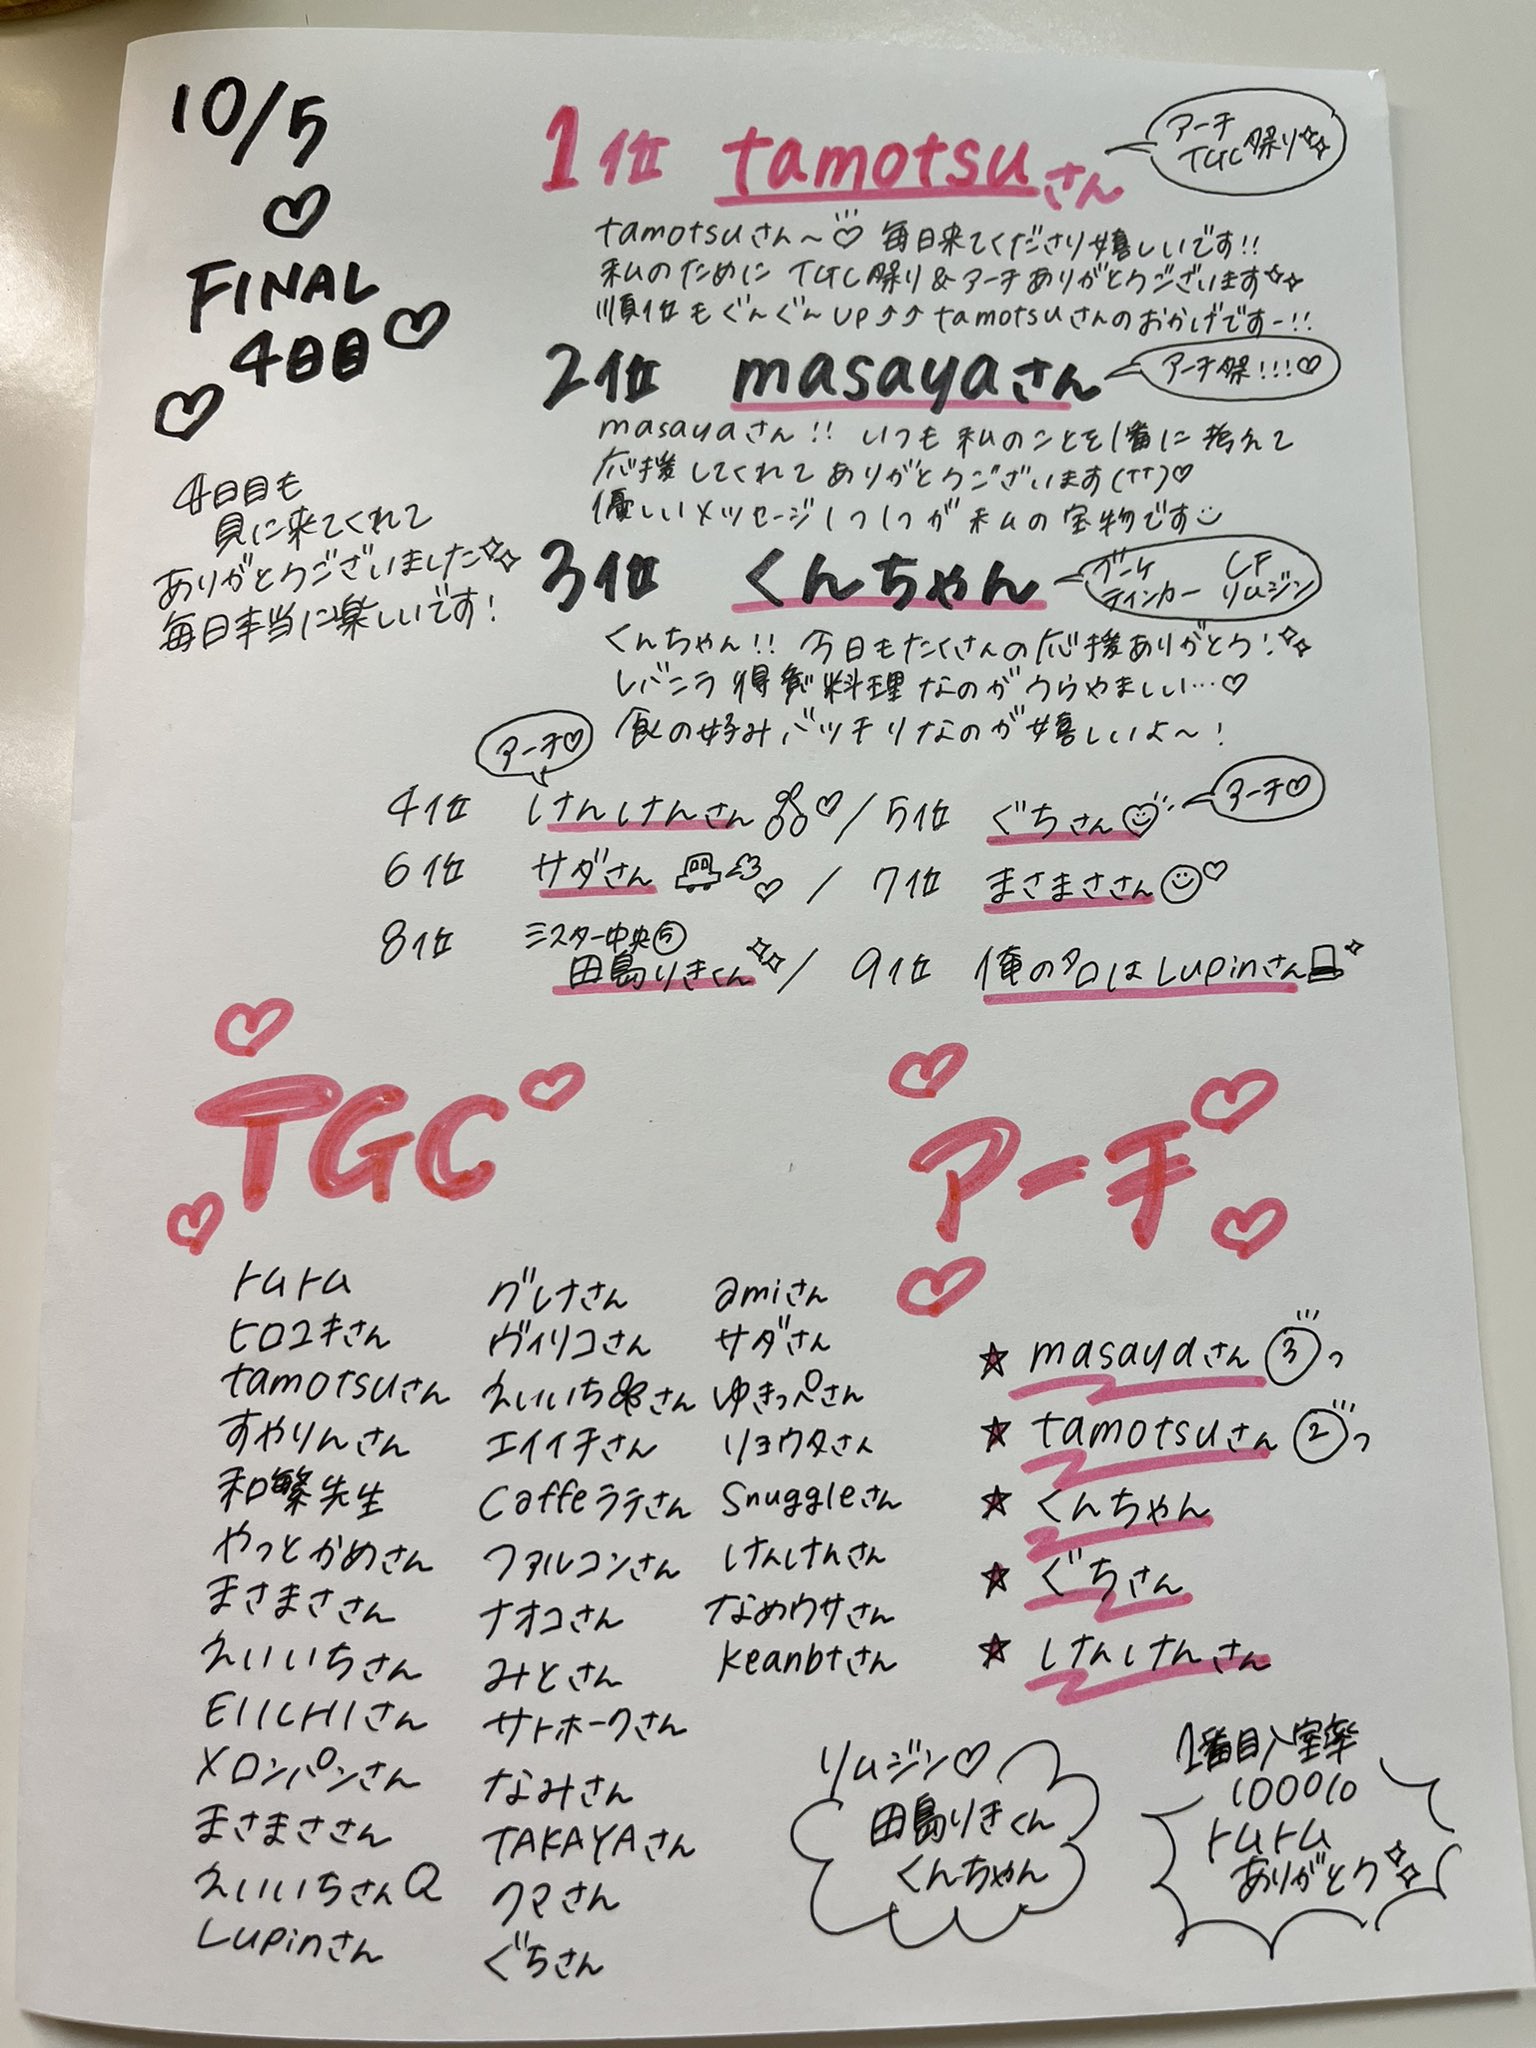 10/5
FINAL
4日目
4日目も
見に来てくれて
ありがとうございました
毎日本当に楽しいです!
1位 tamotsuさん
アーチ
TGC祭り
tamotsuさん~ 毎日来てくださり嬉しいです!!
私のために TGC祭り&アーチありがとうございます
順位もぐんぐんUP⤴⤴tamotsuさんのおかげですー!!
2位 masayaさん
アーチ祭!!!
masayaさん!! いつも私のことを1番に考えて
応援してくれてありがとうございます(††)♡
優しいメッセージ1つ1つが私の宝物です
3位 くんちゃん
ブーケ LF
ティンカー リムジン
くんちゃん!! 今日もたくさんの応援ありがとう!
レバニラ得意料理なのがうらやましい…♡
食の好みバッチリなのが嬉しいよ~!
アーチ♡
4位 けんけんさん / 5位 ぐちさん
アーチ♡
6位 サダさん / 7位 まさまささん
8位 ミスター中央⑤
田島りきくん / 9位 俺のタロはLupinさん
TGC
アーチ
トムトム
ヒロユキさん
tamotsuさん
すやりんさん
和繁先生
やっとかめさん
まさまささん
えいいちさん
EIICHIさん
メロンパンさん
まさまささん
えいいちさんQ
Lupinさん
グレナさん
ヴィリコさん
えいいちさん
エイイチさん
Caffeラテさん
ファルコンさん
ナオコさん
みとさん
サトホークさん
なみさん
TAKAYAさん
クマさん
ぐちさん
amiさん
サダさん
ゆきっぺさん
リョウタさん
Snuggleさん
けんけんさん
なめウサさん
keanbtさん
★ masayaさん③つ
★ tamotsuさん②つ
★ くんちゃん
★ ぐちさん
★ けんけんさん
リムジン♡
田島りきくん
くんちゃん
1番目入室率
100%
トムトム
ありがとう